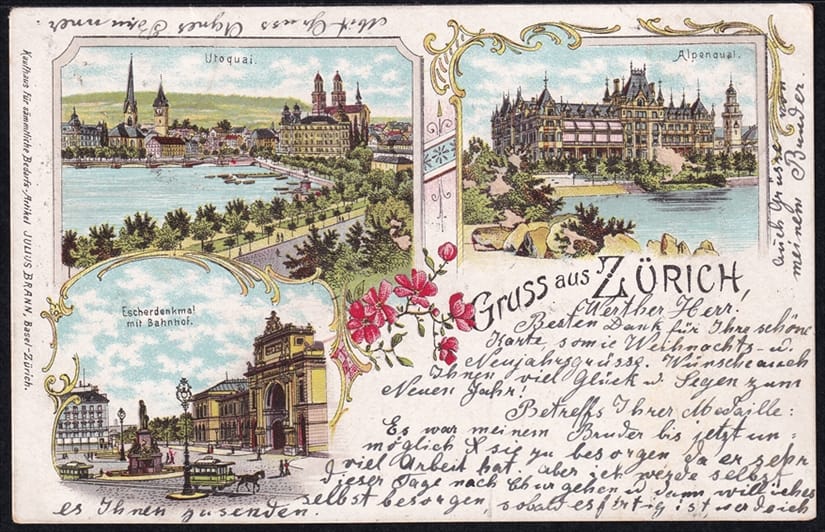 Utoquai.
Alpenquai.
Escherdenkmal
mit Bahnhof.
Kaufhaus für sämmtliche Bedarfs-Artikel JULIUS BRANN, Basel-Zürich.
Gruss aus ZÜRICH,
Werther Herr!
Besten Dank für Ihre schöne
Karte sowie Weihnachts- u.
Neujahrsgrüsse. Wünsche auch
Ihnen viel Glück u. Segen zum
Neuen Jahr!
Betreffs Ihrer Medaille:
Es war meinem Bruder bis jetzt un=
möglich sie zu besorgen da er sehr
viel Arbeit hat, aber ich werde selbst
dieser Tage nach Chur gehen u dann will ich es
selbst besorgen, sobald es fertig ist werde ich
es Ihnen zusenden.
auch Grüsse von
meinem Bruder.
Mit Gruss Agnes